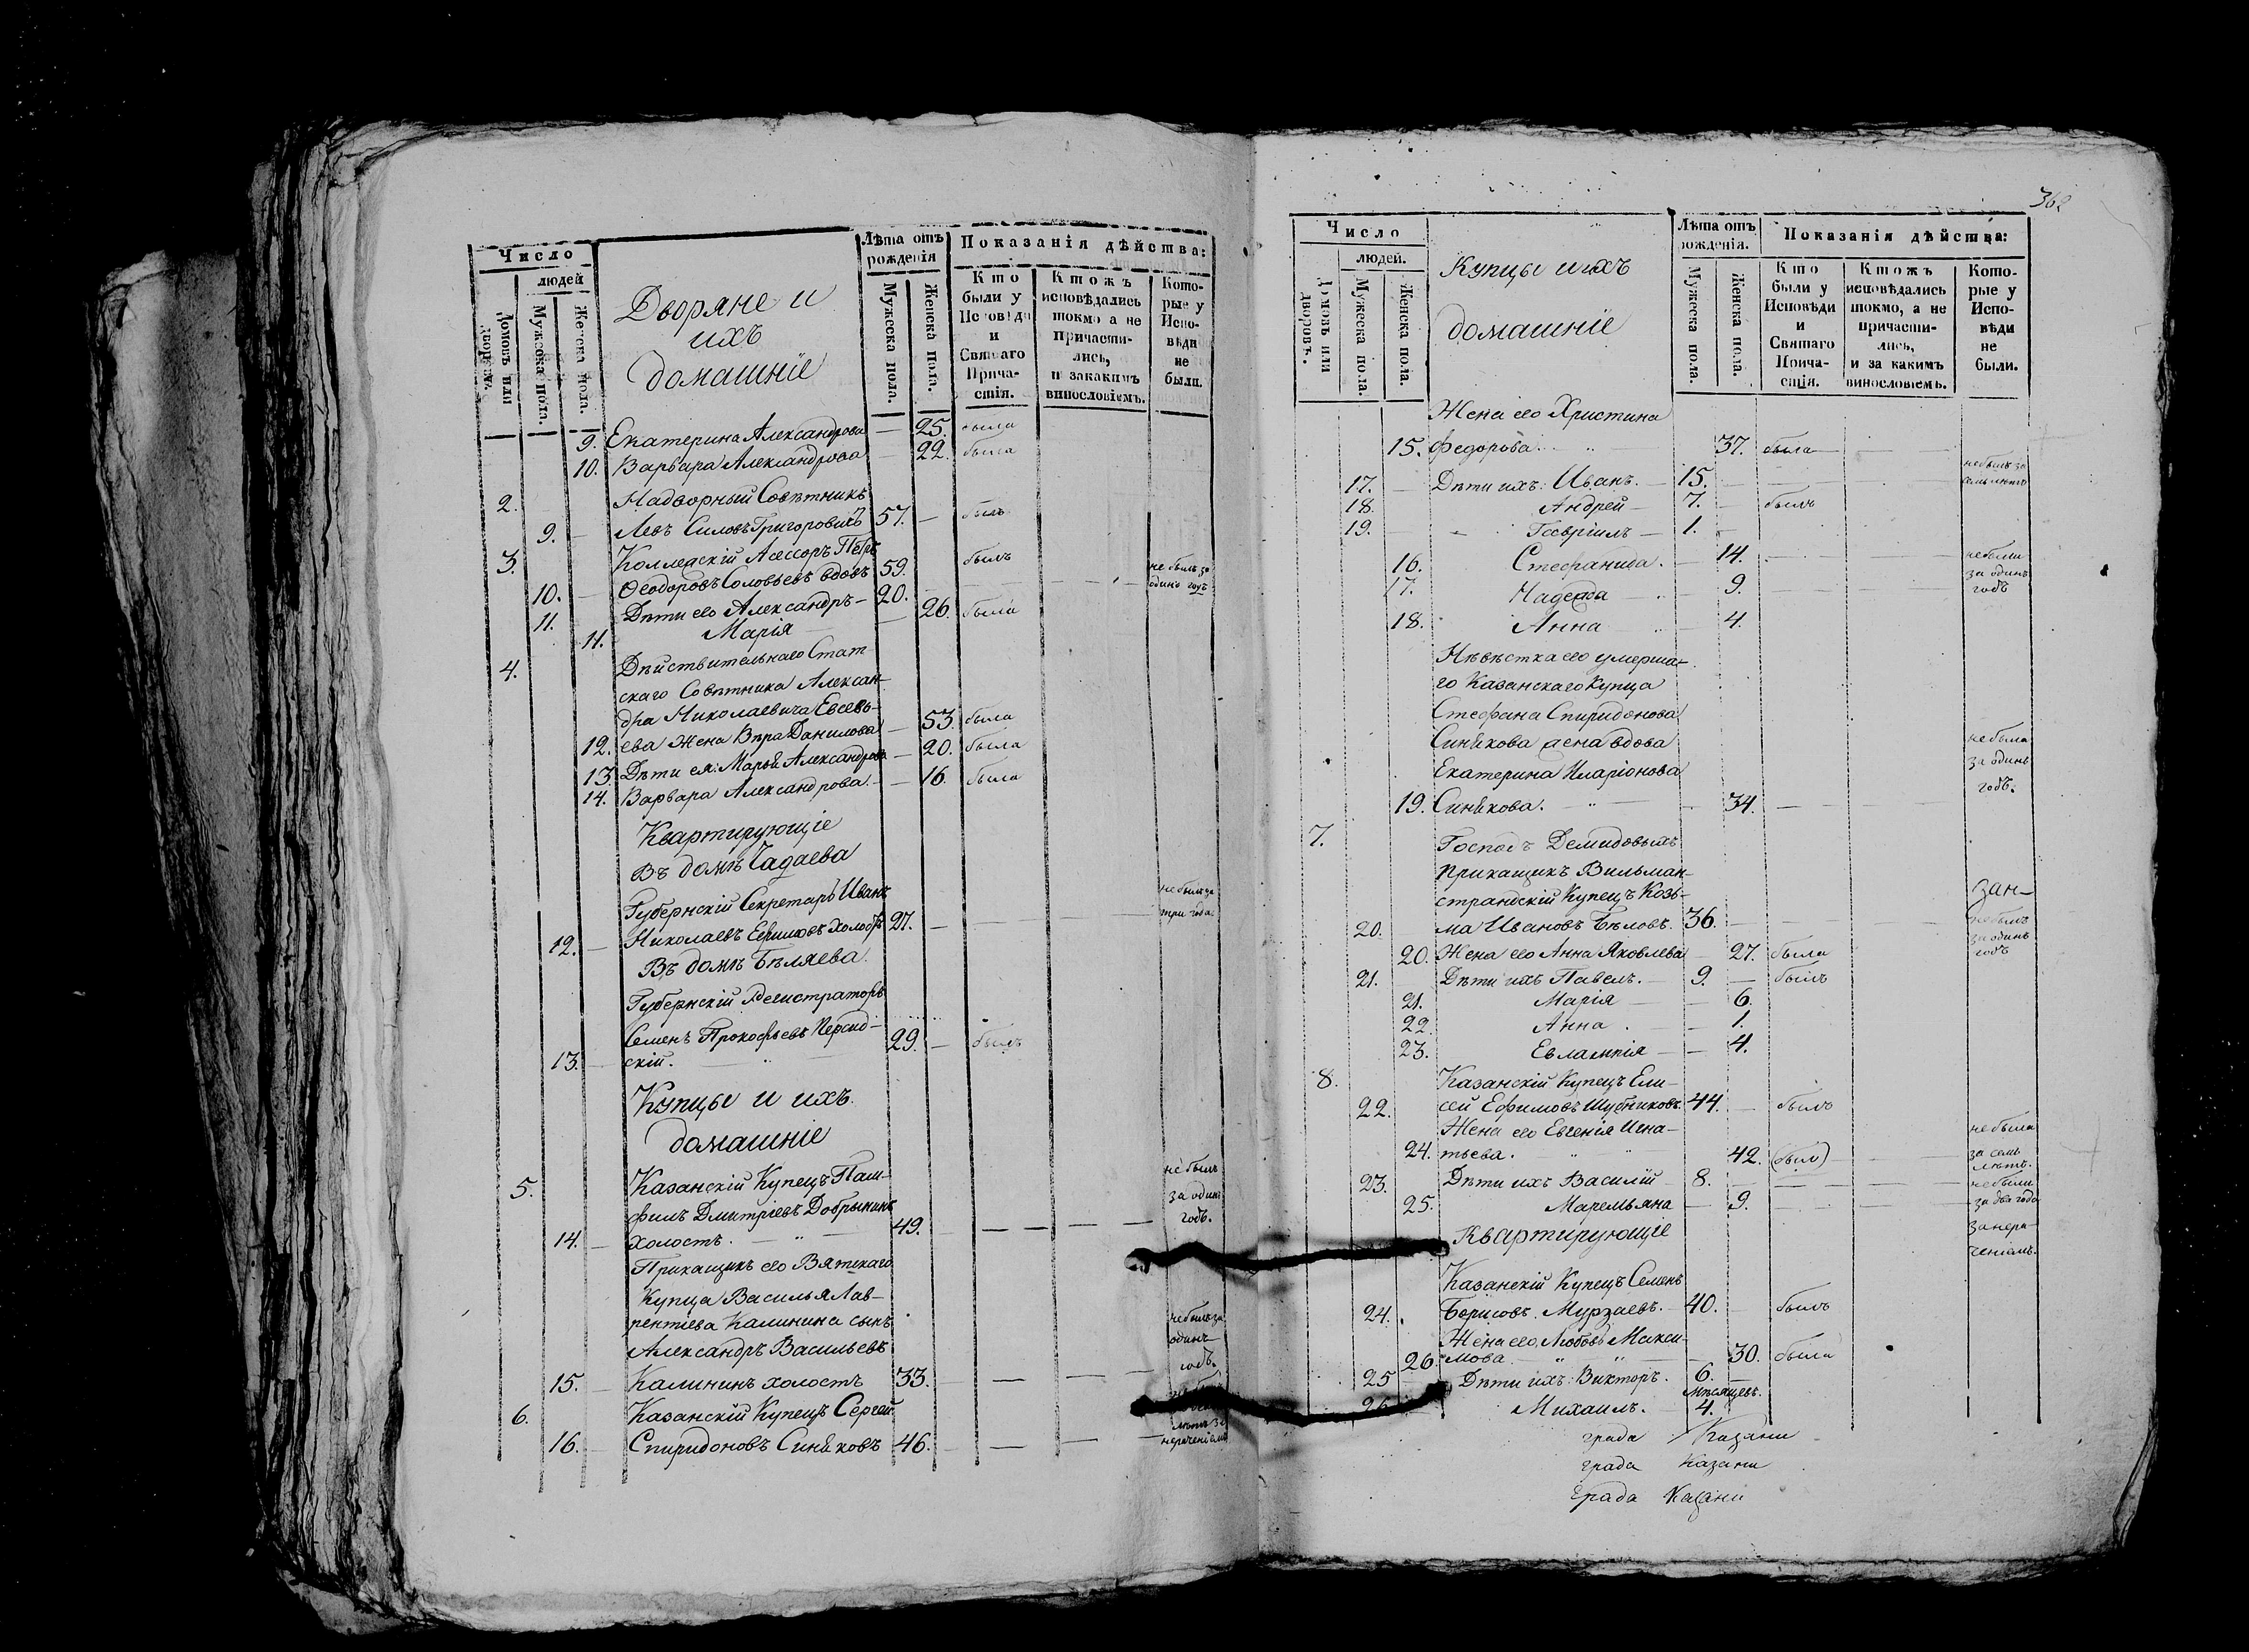 Число
людей
Домовъ или дворовъ.
Мужеска пола.
Женска пола.
Дворяне и
ихъ
домашніе
Лѣта отъ рожденія
Мужеска пола.
Женска пола.
Показанія дѣйства:
Кто были у Исповѣди и Святаго Причастія.
Ктожъ исповѣдались токмо а не причастились, и закакимъ винословіемъ.
Которые у Исповѣди не были.
9. Екатерина Александрова — 25. была
10. Варвара Александрова — 22. была
2. Надворный Совѣтникъ
9. — Левъ Силовъ Григоровичъ 57. — былъ
3. Коллежскій Асессоръ Петръ
10. — Ѳеодоровъ Соловьевъ вдовъ 59. былъ
11. Дѣти его Александръ — 20. — не былъ за одинъ годъ
11. Марія — 26. была
4. Дѣйствительнаго Стат-
скаго Совѣтника Алексан-
дра Николаевича Евсевь-
12. ева Жена Вѣра Данилова — 53. была
13. Дѣти ея: Марья Александрова — 20. была
14. Варвара Александрова. — 16. была
Квартирующіе
Въ домѣ Чадаева
Губернскій Секретарь Иванъ
12. — Николаевъ Ефимовъ холостъ 27. — не былъ за три года.
Въ домѣ Бѣляева.
Губернскій Регистраторъ
Семенъ Прокофьевъ Персид-
13. — скій. 29. — былъ
Купцы и ихъ
домашніе
5. Казанскій Купецъ Пам-
филъ Дмитріевъ Добрынинъ
14. — холостъ. 49. — не былъ за одинъ годъ.
Прикащикъ его Вятскаго
Купца Василья Лав-
рентіева Калинина сынъ
Александръ Васильевъ
15. — Калининъ холостъ 33. — не былъ за одинъ годъ.
6. Казанскій Купецъ Сергей
16. — Спиридоновъ Синяковъ 46. — лѣтъ за нераченіемъ
362
Число
людей.
Домовъ или дворовъ.
Мужеска пола.
Женска пола.
Купцы и ихъ
домашніе
Лѣта отъ рожденія.
Мужеска пола.
Женска пола.
Показанія дѣйства:
Кто были у Исповѣди и Святаго Причастія.
Ктожъ исповѣдались токмо, а не причастились, и за какимъ винословіемъ.
Которые у Исповѣди не были.
Жена его Христина
15. Федорова. 37. была
17. — Дѣти ихъ: Иванъ. — 15. — не былъ за семь лѣтъ
18. Андрей — 7. — былъ
19. Гавріилъ — 1. —
16. Стефанида. — 14. — не были
17. Надежда — 9. — за одинъ годъ
18. Анна — 4.
Невѣстка его умерша-
го Казанскаго Купца
Стефана Спиридонова
Синякова жена вдова
Екатерина Иларіонова
19. Синякова. — 34. — не была за одинъ годъ.
7. Господъ Демидовыхъ
прикащикъ Вильман-
страндскій Купецъ Козь-
20. ма Ивановъ Бѣловъ. 36. — не былъ за одинъ годъ
20. Жена его Анна Яковлева — 27. была
21. Дѣти ихъ Павелъ. — 9. — былъ
21. Марія — 6.
22. Анна. — 1.
23. Евлампія — 4.
8. Казанскій Купецъ Ели-
22. сей Ефимовъ Шубниковъ. 44. — былъ
Жена его Евгенія Игна-
24. тьева. 42. — не была за семь лѣтъ.
23. Дѣти ихъ Василій — 8. — не были
25. Маремьяна — 9. — за два года
за нера-
ченіемъ.
Квартирующіе
Казанскій Купецъ Семенъ
24. Борисовъ Мурзаевъ. — 40. — былъ
Жена его Любовь Макси-
26. мова. — 30. была
25 Дѣти ихъ: Викторъ. — 6. —
мѣсяцевъ.
26 Михаилъ. — 4.
града Казани
града Казани
Града Казани